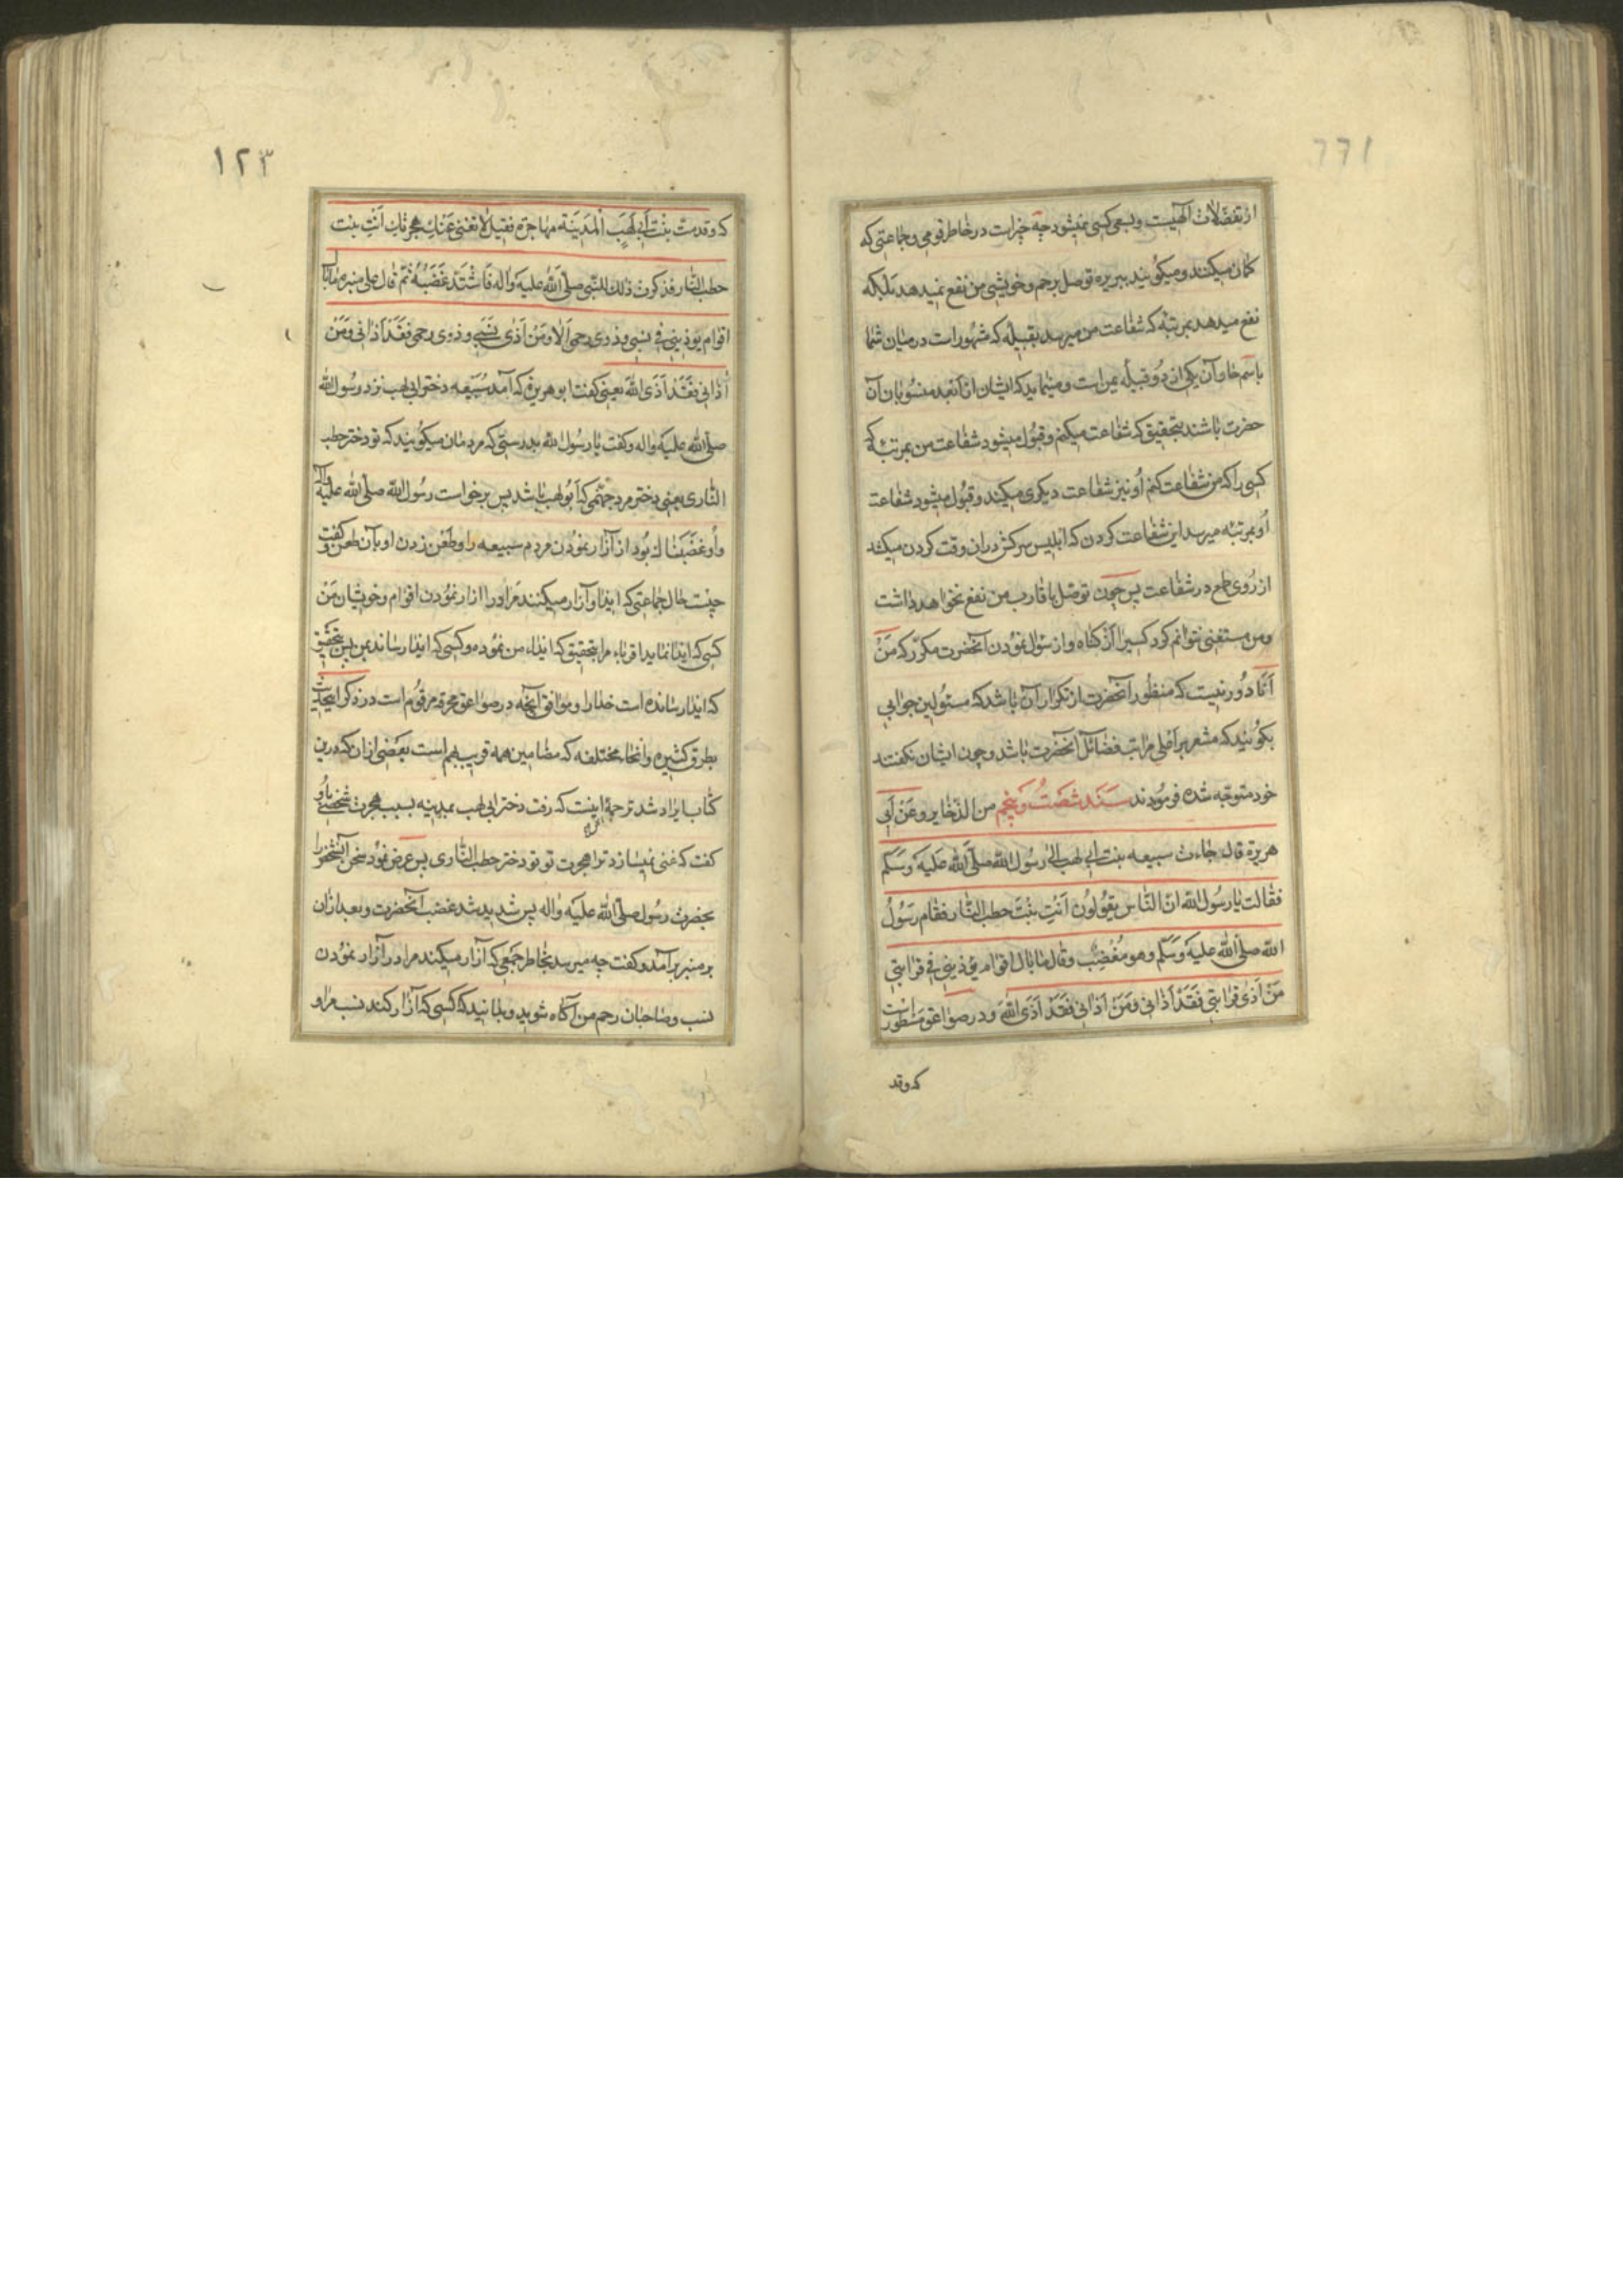 از تفضّلات آلهیست وبسعی کسی نمیشود چه چیز است در خاطر قومی وجماعتی که
کمان میکنند ومیکویند ببریره توصل برحم وخویشی من نفع نمیدهد بلکه
نفع میدهد بمرتبه که شفاعت من میرسد بقبیله که مشهور است در میان شما
باسم حا وآن یکی از دو قبیله یمن است
حضرت باشند بتحقیق که شفاعت میکنم وقبول میشود شفاعت من بمرتبه که
کسی را که من شفاعت کنم او نیز شفاعت دیکری میکند وقبول میشود شفاعت
او بمرتبه میرسد این شفاعت کردن که ابلیس سرکش دران وقت کردن میکشد
از روی طمع در شفاعت پس چون توصل باقارب من نفع نخواهد داشت
ومن مستغنی نتوانم کرد کسیرا از کناه واز سؤال نمودن آنحضرت مکرّر که مَنْ
اَنَا دور نیست که منظور آنحضرت از تکرار آن باشد که مسئولین جوابی
بکویند که مشعر بر اعلی مراتب فضائل آنحضرت باشد وچون ایشان نکفتند
خود متوجّه شده فرمودند سَنَد شصت وپنجم من الذّخایر وعَنْ اَبی
هریرة قال جاءت سبیعه بنت ابی لهب الی رسُول اللّه صلّی اللّه علیه وَسَلّم
فقالت یا رسُول اللّه انّ النّاس یَقُولون اَنتِ بنتُ حطب النّار فقام رسُولُ
اللّه صلّی اللّه علیه وَسَلّم وهو مُغْضِبٌ وقال ما بال اقوام یؤذینی فی قرابتی
مَنْ اَذی قرابتی فَقَدْ اَذانی ومَنْ اَذانی فَقَدْ اَذَی اللّهَ ودر صواعق مسطور است
که وقد
١٢٣
که وقدمت بنت اَبی لَهَب اَلمدینَة مهاجرة فقیل لا تغنی عَنْكِ هجرتك اَنتِ بنت
حطب النّار فذکرت ذلك للنّبی صلّی اللّه علیه واله فَاشْتَدّ غَضَبُهُ ثمّ قال علی منبره ما بال
اقوام یؤذینی فی نسبی وذوی رحمی اَلا ومَنْ اَذی نسَبی وذوی رحمی فَقَدْ اَذانی ومَنْ
اَذانی فَقَدْ اَذَی اللّهَ یعنی کفت ابو هریرة که آمد سُبَیعه دختر ابی لهب نزد رسُول اللّه
صلّی اللّه علیه واله وکفت یا رسُول اللّه بدرستی که مردمان میکویند که تو دختر حطب
النّاری یعنی دختر مرد جهنّمی که ابُو لهب باشد پس برخواست رسُول اللّه صلّی اللّه علیه واله
واو غضبناك بود از آزار نمودن مردم سبیعه را وطعن زدن او بآن طعن وکفت
چیست حال جماعتی که ایذا وآزار میکنند مرا در ازار نمودن اقوام وخویشان مَنْ
کسی که ایذا نماید اقرباء مرا بتحقیق که ایذاء من نموده وکسی که ایذا رساند بمن پس بتحقیق
که ایذا رسانده است خدا را وموافق آنچه در صواعق محرقه مرقوم است در ذکر اینحدیث
بطرق کثیره وانحاء مختلفه که مضامین همه قریب بهم است بعضی ازان که درین
کتاب ایراد شد ترجمة اینست که رفت دختر ابی لهب بمدینه بسبب هجرت شخصی باو
کفت که غنی نمیسازد ترا هجرت تو تو دختر حطب النّاری پس عرض نمود سخن آنشخص را
بحضرت رسُول صلّی اللّه علیه واله پس شدید شد غضب آنحضرت وبعد ازان
بر منبر برآمد وکفت چه میرسد بخاطر جمعی که آزار میکنند مرا در آزار نمودن
نسب وصاحبان رحم من آکاه شوید وبدانید که کسی که آزار کند نسب مرا و